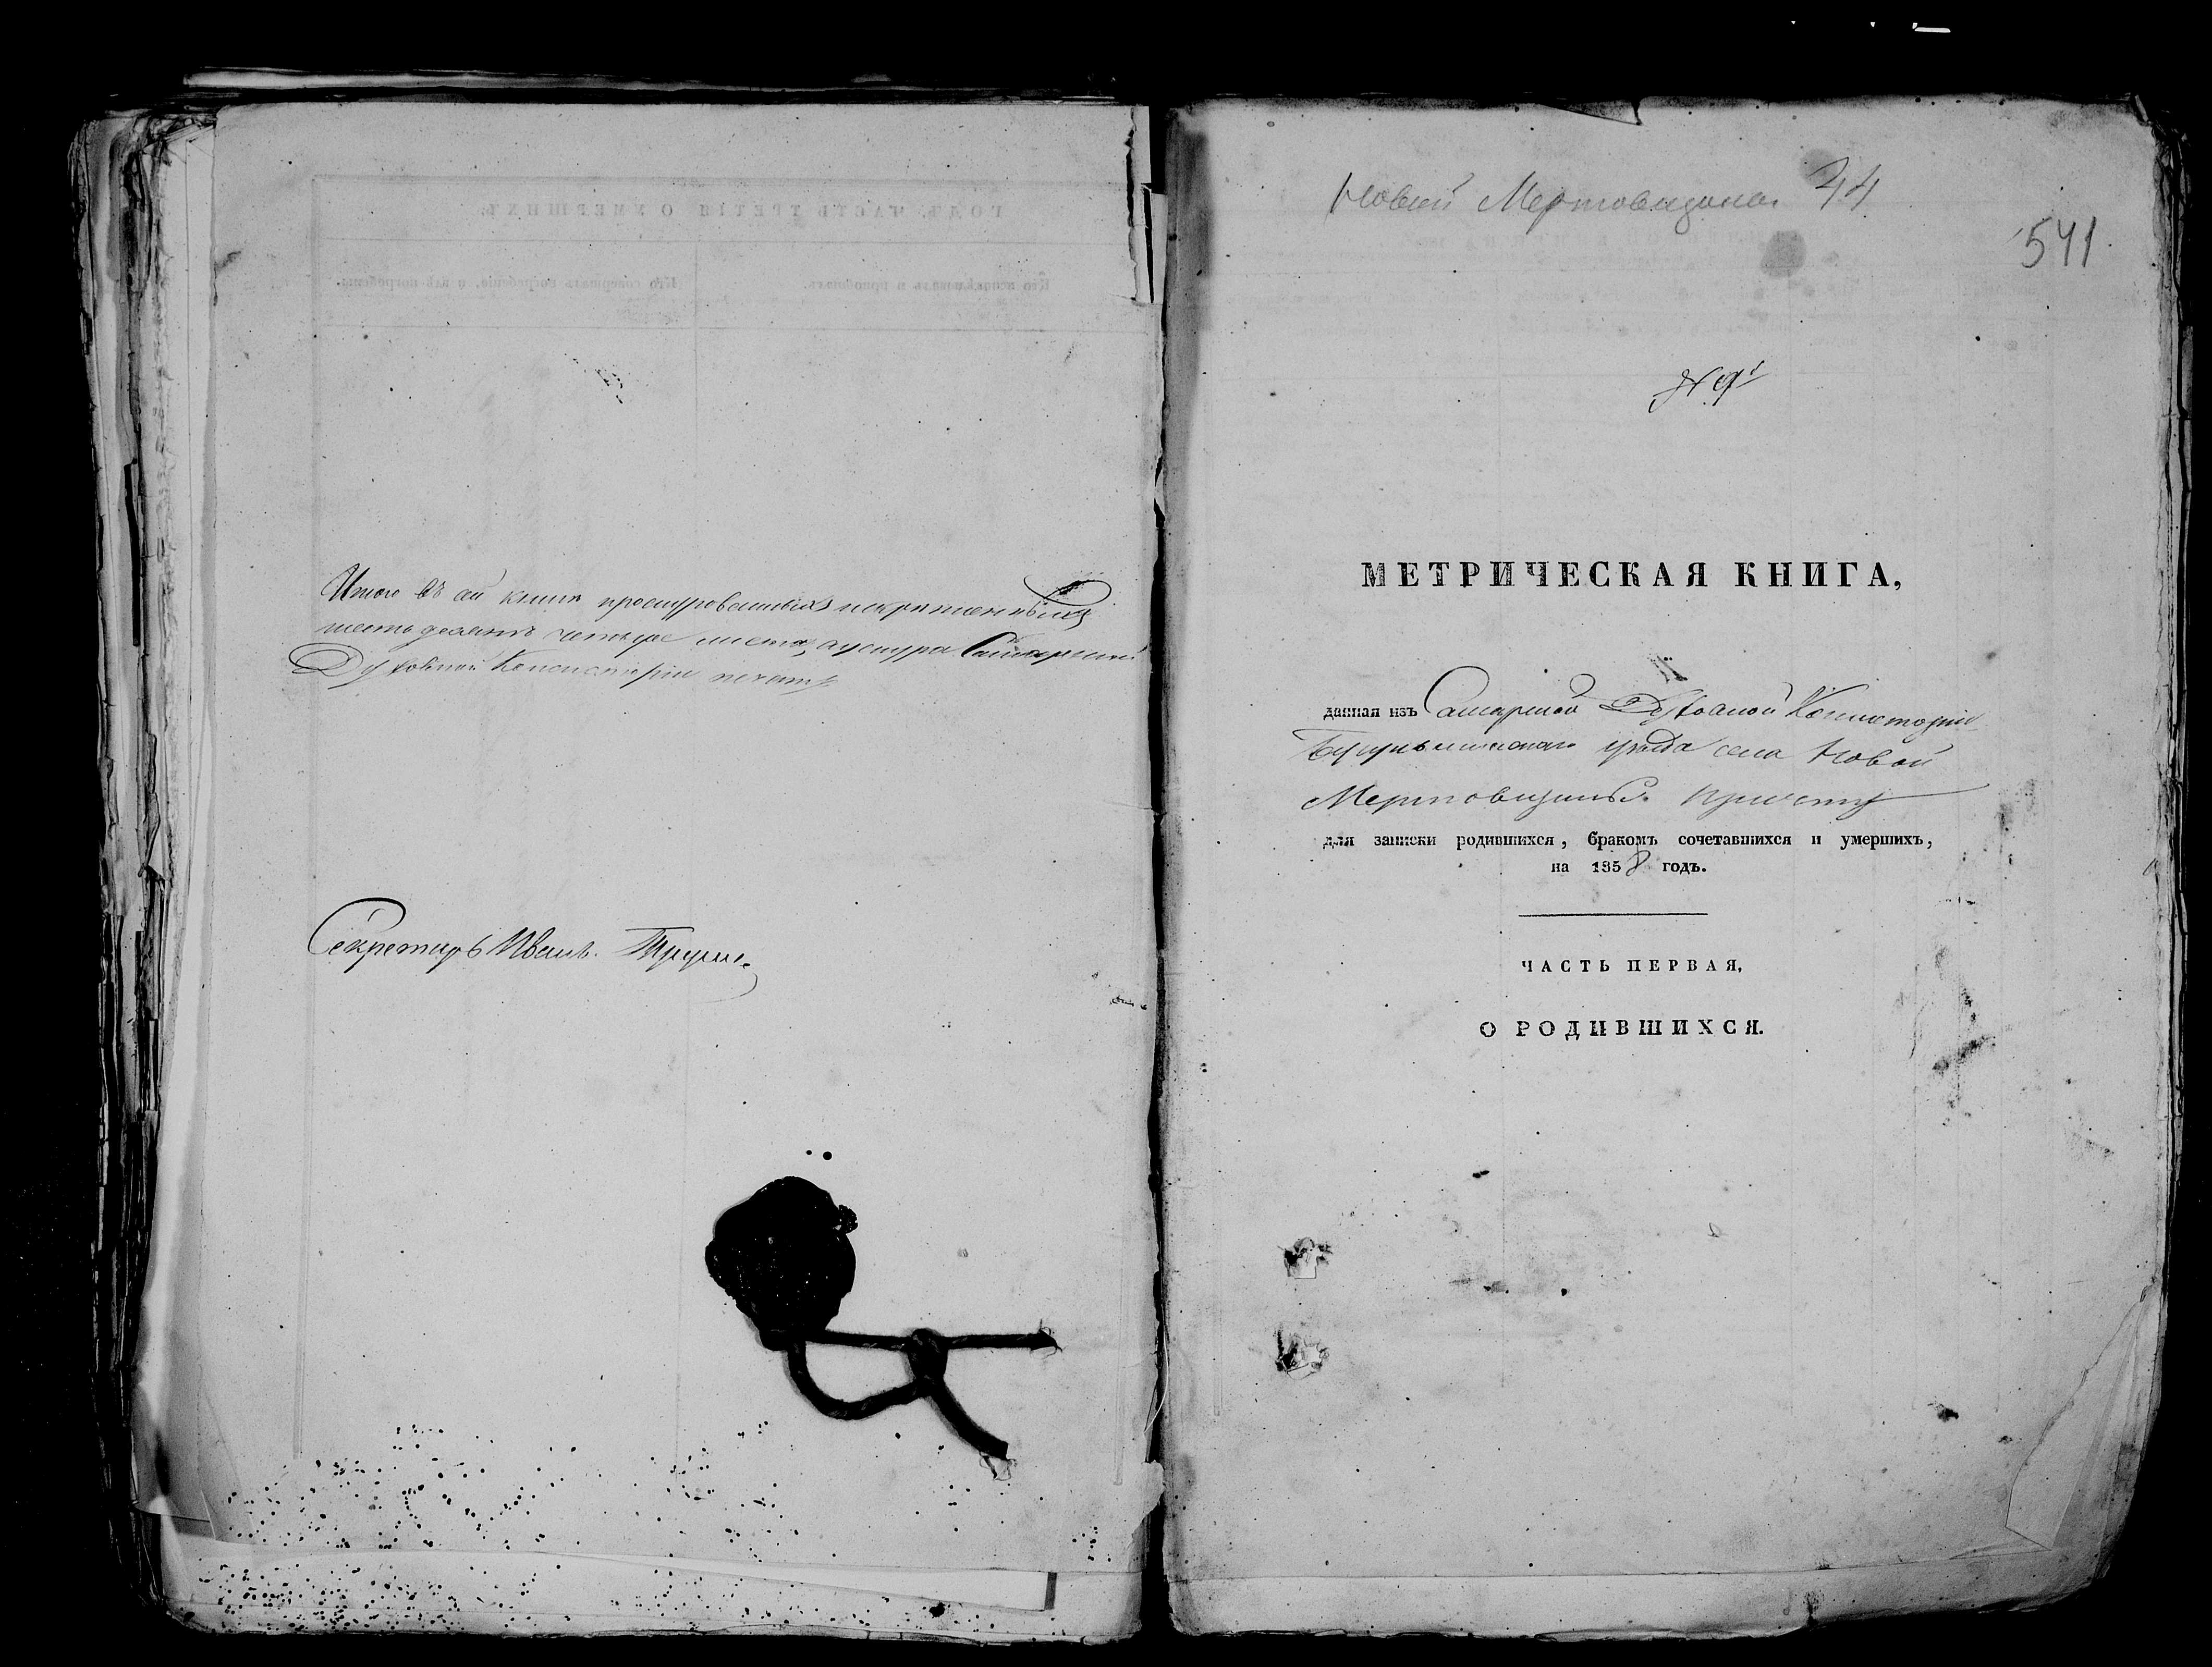 Итого въ сей книге прошнурованныхъ и скрепленныхъ
шестьдесятъ четыре листа, а у шнура Самарской
Духовной Консисторіи печать
Секретарь Иванъ
Новой Мертовщины 44
541
№ 91
МЕТРИЧЕСКАЯ КНИГА,
данная изъ Самарской Духовной Консисторіи
Бугульминскаго уезда села Новой
причту
для записки родившихся, бракомъ сочетавшихся и умершихъ,
на 1858 годъ.
ЧАСТЬ ПЕРВАЯ,
О РОДИВШИХСЯ.